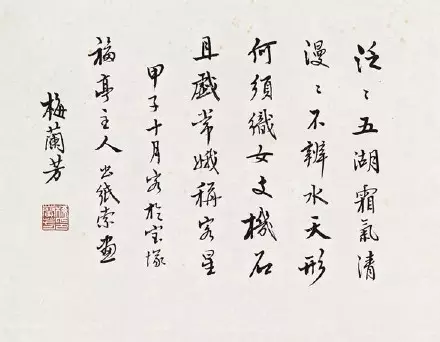 泛〻五湖霜氣清
漫〻不辨水天形
何須織女支機石
且戲常娥稱客星
甲子十月客於宝塚
福亭主人出紙索画
梅蘭芳